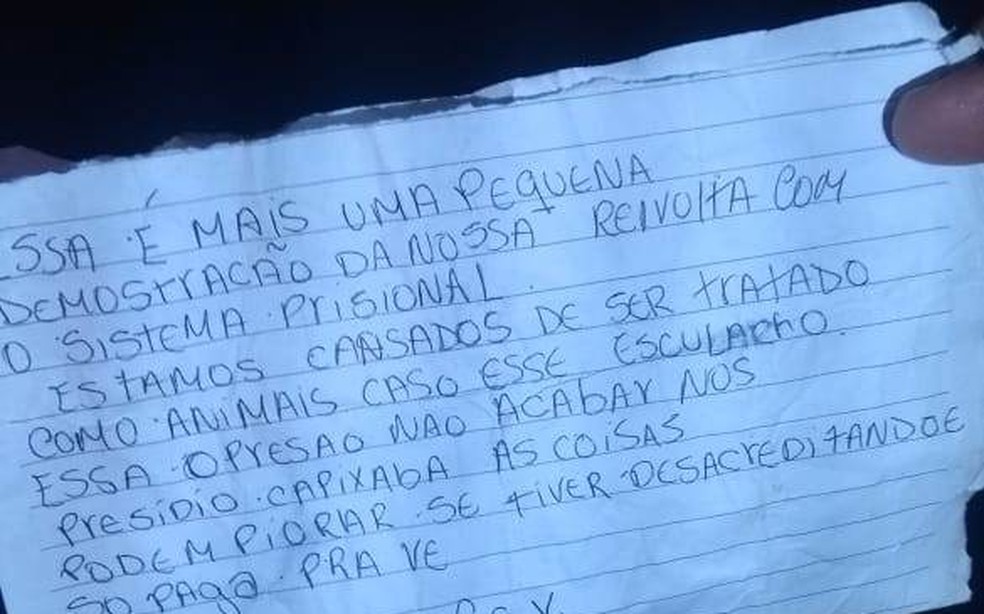 ESSA É MAIS UMA PEQUENA
DEMOSTRAÇÃO DA NOSSA REIVOLTA COM
O SISTEMA PRISIONAL.
ESTAMOS CANSADOS DE SER TRATADO
COMO ANIMAIS CASO ESSE ESCULACHO.
ESSA OPRESAO NAO ACABAR NOS
PRESIDIO CAPIXABA AS COISAS
PODEM PIORAR SE TIVER DESACREDITANDOE
SO PAGA PRA VE